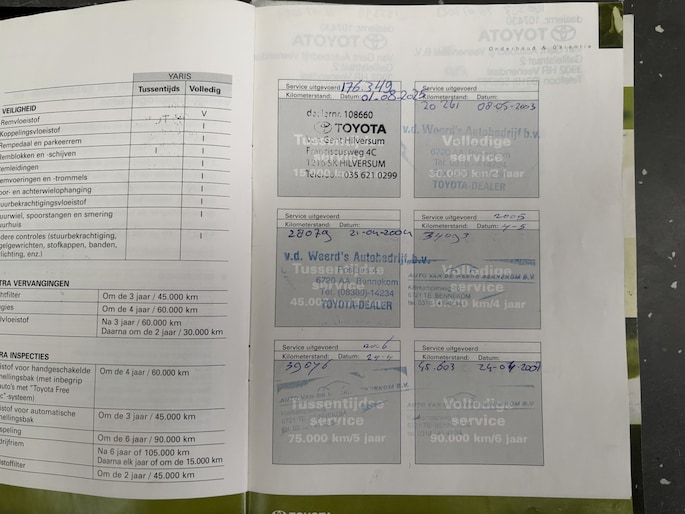 Onderhoud & Garantie
YARIS
Tussentijds Volledig
VEILIGHEID
Remvloeistof V
Koppelingsvloeistof I
Rempedaal en parkeerrem I
Remblokken en -schijven I I
emleidingen I
emvoeringen en -trommels I
oor- en achterwielophanging I
uurbekrachtigingsvloeistof I
uurwiel, spoorstangen en smering I
uurhuis
dere controles (stuurbekrachtiging, I
gelgewrichten, stofkappen, banden,
lichting, enz.)
TRA VERVANGINGEN
htfilter Om de 3 jaar / 45.000 km
gies Om de 4 jaar / 60.000 km
lvloeistof Na 3 jaar / 60.000 km
Daarna om de 2 jaar / 30.000 km
RA INSPECTIES
istof voor handgeschakelde Om de 4 jaar / 60.000 km
nellingsbak (met inbegrip
auto's met "Toyota Free
c"-systeem)
istof voor automatische Om de 3 jaar / 45.000 km
nellingsbak
speling Om de 6 jaar / 90.000 km
drijfriem Na 6 jaar of 105.000 km
Daarna elk jaar of om de 15.000 km
dstoffilter Om de 2 jaar / 45.000 km
Service uitgevoerd
176.349
Kilometerstand: Datum:
01-08-2025
dealernr. 108660
TOYOTA
Van Gent Hilversum
Franciscusweg 4C
1216 SK HILVERSUM
Telefoon 035 621 0299
Service uitgevoerd
Kilometerstand: Datum:
20 261 08-05-2003
v.d. Weerd's Autobedrijf b.v.
Volledige
service
30.000 km/2 jaar
TOYOTA-DEALER
Service uitgevoerd
Kilometerstand: Datum:
28079 21-04-2004
v.d. Weerd's Autobedrijf b.v.
Tussentijdse
service
45.000 km/3 jaar
6720 AA Bennekom
Tel. (08389)-14234
TOYOTA-DEALER
Service uitgevoerd 2005
Kilometerstand: Datum: 4-5
34093
Volledige
service
60.000 km/4 jaar
6721 TE BENNEKOM
Service uitgevoerd 2006
Kilometerstand: Datum:
39076 24-4
Tussentijdse
service
75.000 km/5 jaar
Service uitgevoerd
Kilometerstand: Datum:
45.603 24-04-2007
Volledige
service
90.000 km/6 jaar
TOYOTA